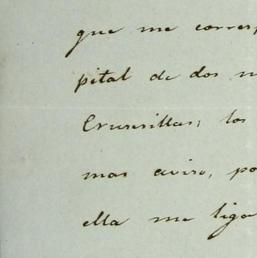 que me corres
pital de dos m
Crucecillas; los
mas aviso, po
ella me liga